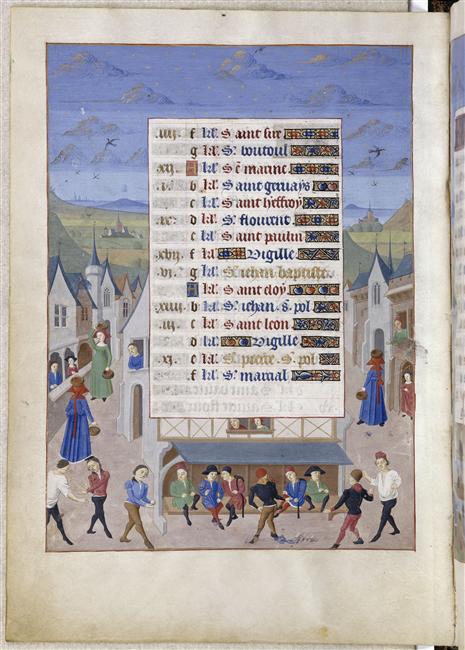 .iiij. f kl. Saint cire
g kl. S. boutoul
.xij. A kl. Ste marine
.i. b kl. Saint gervays
c kl. Saint heffroy
.ix. d kl. St. flourent
e kl. Saint paulin
.xvij. f kl. Vigille
.vi. g kl. St. iehan baptiste
A kl. Saint eloy
.xiiij. b kl. St. iehan. s. pol
.iij. c kl. Saint leon
d kl. Vigille
.xi. e kl. St. pierre. S. pol
f kl. St. marcial